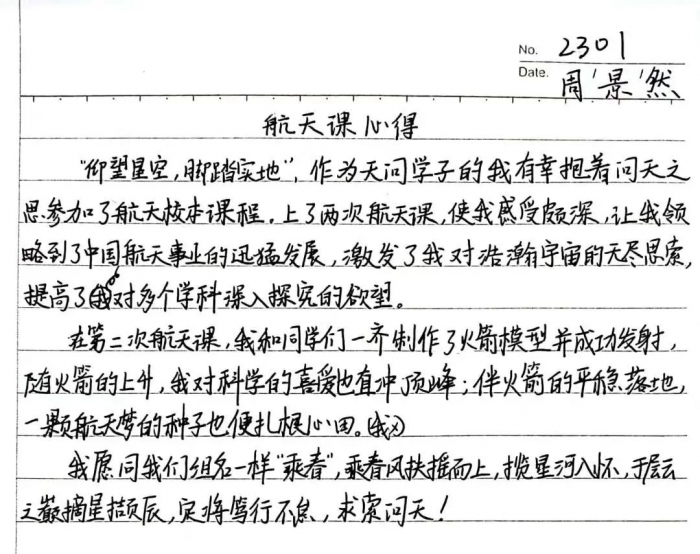 No. 2301
Date. 周景然
航天课心得
“仰望星空，脚踏实地”，作为天问学子的我有幸抱着问天之
思参加了航天校本课程。上了两次航天课，使我感受颇深，让我领
略到了中国航天事业的迅猛发展，激发了我对浩瀚宇宙的无尽思索，
提高了我对多个学科深入探究的欲望。
在第二次航天课，我和同学们一齐制作了火箭模型并成功发射，
随火箭的上升，我对科学的喜爱也直冲顶峰；伴火箭的平稳落地，
一颗航天梦的种子也便扎根心田。
我愿同我们组名一样“乘春”，乘春风扶摇而上，揽星河入怀，于层云
之巅摘星撷辰，定将笃行不怠，求索问天！